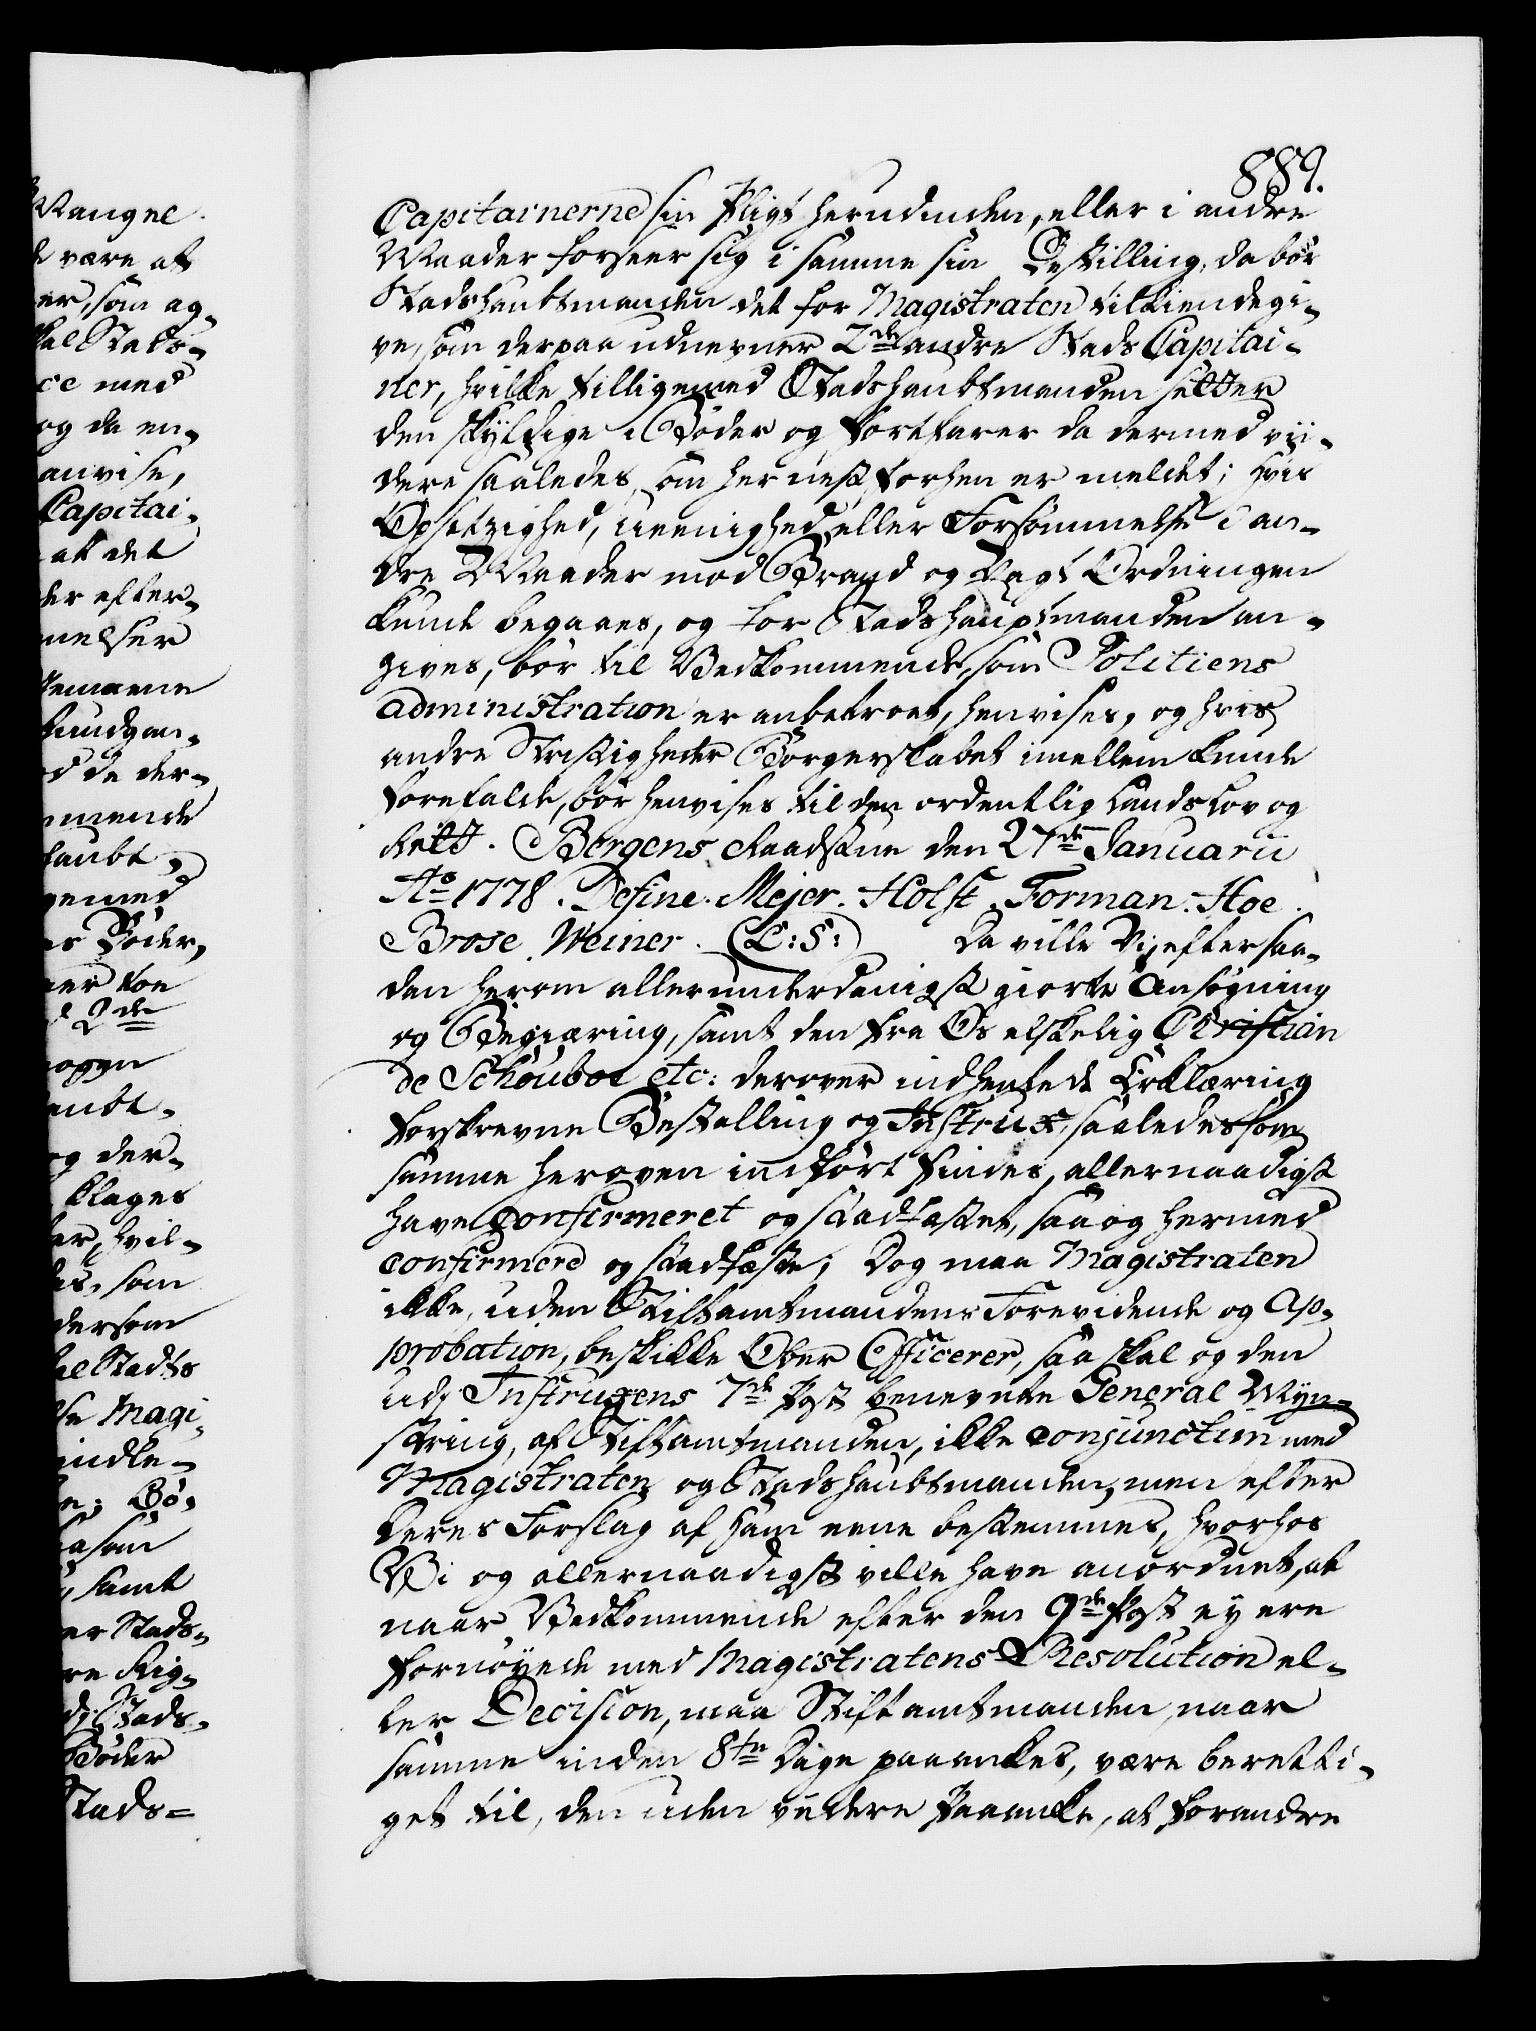 889.
Capitainerne sin Pligt herudinden, eller i andre
Maader forseer sig i samme sin Bestilling, da bør
Stadshaubtmanden det for Magistraten tilkiendegi-
ve, som derpaa udnevner 2de andre Stads Capitai-
ner, hvilke tilligemed Stadshaubtmanden setter
den skyldige i Bøder og fortfarer da dermed vii-
dere saaledes, som her nest forhen er meldet; hvis
Opsetzighed, ueenighed eller Forsømmelse i an-
dre Maader mod Brand og Vagt Ordningen
kunde begaaes, og for Stadshauptmanden an-
gives, bør til Vedkommende, som Politiens
administration er anbetroet, henvises, og hvis
andre Stridigheder Borgerskabet imellem kunde
forefalde, bør henvises til den ordentlig Lands Lov og
Rett. Bergens Raadstue den 27de Januarii
Ao 1778. Define. Mejer. Holst. Forman. Hoe.
Brose. Weiner. (L:S:) Da ville Vi, efter saa-
dan herom allerunderdanigst giorte Ansøgning
og Begiæring, samt den fra Os elskelig Christian
de Schouboe etc: derover indhentede Erklæring
forskrevne Bestalling og Instrux, saaledes som
samme herover indført findes, allernaadigst
have confirmeret og stadfæstet, saa og hermed
confirmere og stadfæste; Dog maa Magistraten
ikke, uden Stiftamtmandens Forevidende og Ap-
probation, beskikke Ober Officerer, saa skal og den
udj Instruxens 7de Post benevnte General Møn-
string, af Stiftamtmanden, ikke conjunctim med
Magistraten og Stadshaubtmanden, men efter
deres Forslag af ham eene bestemmes, hvorhos
Vi og allernaadigst ville have anordnet, at
naar Vedkommende efter den 9de Post ey ere
fornøyede med Magistratens Resolution el-
ler Decision, maa Stiftamtmanden, naar
samme inden 8te Dage paaankes, være beretti-
get til, den uden videre Paaanke, at forandre